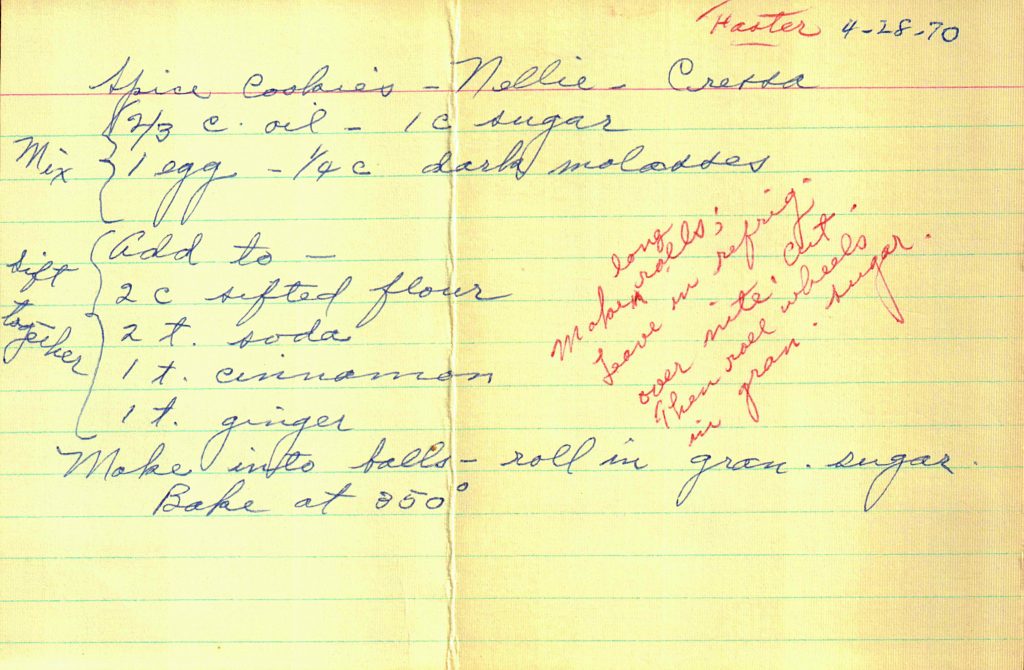 Faster 4-28-70
Spice Cookies - Nellie - Cressa
2/3 c. oil - 1 c sugar
Mix
1 egg - 1/4 c dark molasses
Add to -
Sift together
2 c sifted flour
2 t. soda
1 t. cinnamon
1 t. ginger
Make long rolls;
Leave in refrig.
over nite. Cut.
Then roll wheels
in gran. sugar.
Make into balls - roll in gran. sugar.
Bake at 350°